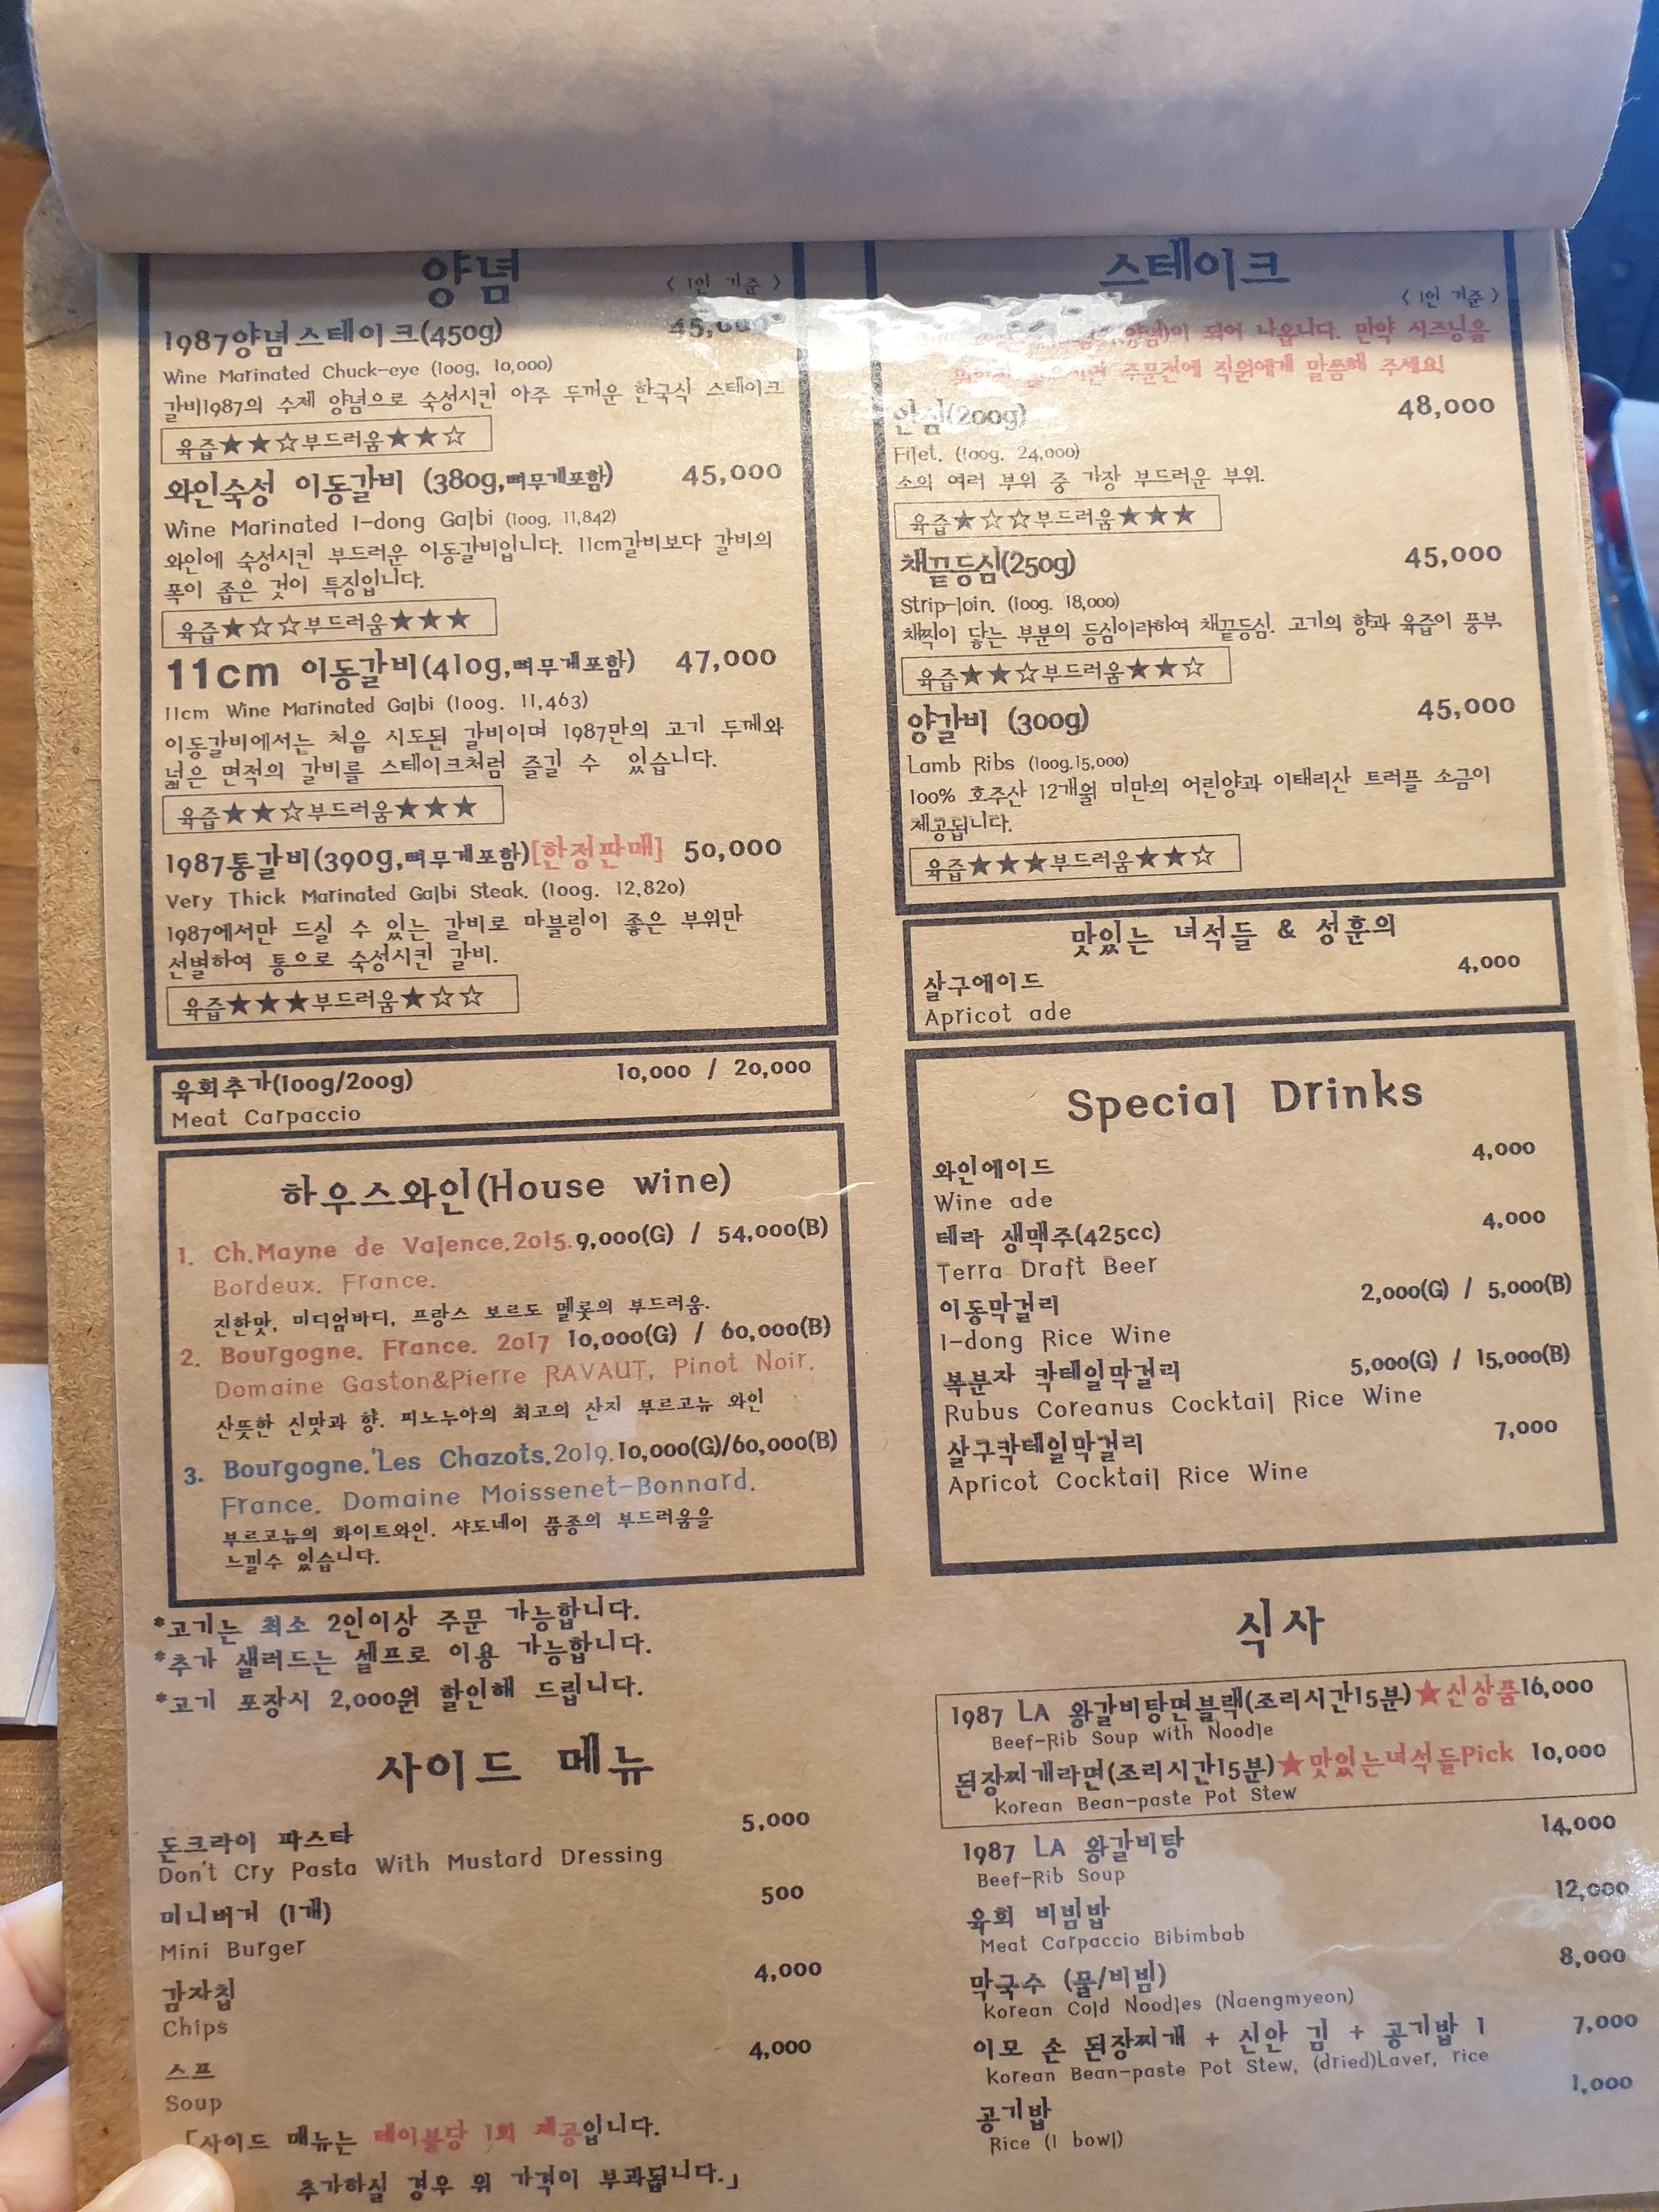 양념
< 1인 기준 >
1987양념스테이크(450g) 45,000
Wine Marinated Chuck-eye (100g, 10,000)
갈비1987의 수제 양념으로 숙성시킨 아주 두꺼운 한국식 스테이크
육즙★★☆부드러움★★☆
와인숙성 이동갈비 (380g,뼈무게포함) 45,000
Wine Marinated I-dong Galbi (100g. 11,842)
와인에 숙성시킨 부드러운 이동갈비입니다. 11cm갈비보다 갈비의
폭이 좁은 것이 특징입니다.
육즙★☆☆부드러움★★★
11cm 이동갈비(410g,뼈무게포함) 47,000
11cm Wine Marinated Galbi (100g. 11,463)
이동갈비에서는 처음 시도된 갈비이며 1987만의 고기 두께와
넓은 면적의 갈비를 스테이크처럼 즐길 수 있습니다.
육즙★★☆부드러움★★★
1987통갈비(390g,뼈무게포함)[한정판매] 50,000
Very Thick Marinated Galbi Steak. (100g. 12,820)
1987에서만 드실 수 있는 갈비로 마블링이 좋은 부위만
선별하여 통으로 숙성시킨 갈비.
육즙★★★부드러움★☆☆
육회추가(100g/200g) 10,000 / 20,000
Meat Carpaccio
하우스와인(House wine)
1. Ch.Mayne de Valence.2015.9,000(G) / 54,000(B)
Bordeux. France.
진한맛, 미디엄바디, 프랑스 보르도 멜롯의 부드러움.
2. Bourgogne. France. 2017 10,000(G) / 60,000(B)
Domaine Gaston&Pierre RAVAUT, Pinot Noir.
산뜻한 신맛과 향. 피노누아의 최고의 산지 부르고뉴 와인
3. Bourgogne.'Les Chazots.2019.10,000(G)/60,000(B)
France. Domaine Moissenet-Bonnard.
부르고뉴의 화이트와인. 샤도네이 품종의 부드러움을
느낄수 있습니다.
*고기는 최소 2인이상 주문 가능합니다.
*추가 샐러드는 셀프로 이용 가능합니다.
*고기 포장시 2,000원 할인해 드립니다.
사이드 메뉴
돈크라이 파스타 5,000
Don't Cry Pasta With Mustard Dressing
미니버거 (1개) 500
Mini Burger
감자칩 4,000
Chips
스프 4,000
Soup
「사이드 매뉴는 테이블당 1회 제공입니다.
추가하실 경우 위 가격이 부과됩니다.」
스테이크
< 1인 기준 >
되어 나옵니다. 만약 시즈닝을
주문전에 직원에게 말씀해 주세요!
안심(200g) 48,000
Filet. (100g. 24,000)
소의 여러 부위 중 가장 부드러운 부위.
육즙★☆☆부드러움★★★
채끝등심(250g) 45,000
Strip-loin. (100g. 18,000)
채찍이 닿는 부분의 등심이라하여 채끝등심. 고기의 향과 육즙이 풍부.
육즙★★☆부드러움★★☆
양갈비 (300g) 45,000
Lamb Ribs (100g.15,000)
100% 호주산 12개월 미만의 어린양과 이태리산 트러플 소금이
제공됩니다.
육즙★★★부드러움★★☆
맛있는 녀석들 & 성훈의
살구에이드 4,000
Apricot ade
Special Drinks
와인에이드 4,000
Wine ade
테라 생맥주(425cc) 4,000
Terra Draft Beer
이동막걸리 2,000(G) / 5,000(B)
I-dong Rice Wine
복분자 칵테일막걸리 5,000(G) / 15,000(B)
Rubus Coreanus Cocktail Rice Wine
살구칵테일막걸리 7,000
Apricot Cocktail Rice Wine
식사
1987 LA 왕갈비탕면블랙(조리시간15분)★신상품16,000
Beef-Rib Soup with Noodle
된장찌개라면(조리시간15분)★맛있는녀석들Pick 10,000
Korean Bean-paste Pot Stew
1987 LA 왕갈비탕 14,000
Beef-Rib Soup
육회 비빔밥 12,000
Meat Carpaccio Bibimbab
막국수 (물/비빔) 8,000
Korean Cold Noodles (Naengmyeon)
이모 손 된장찌개 + 신안 김 + 공기밥 1 7,000
Korean Bean-paste Pot Stew, (dried)Laver, rice
공기밥 1,000
Rice (1 bowl)